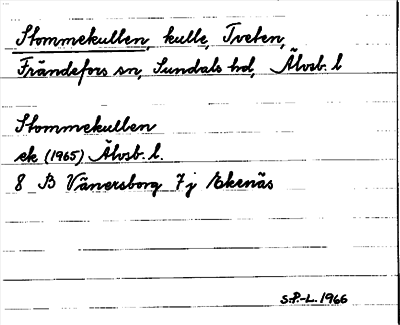 Stommekullen, kulle, Tveten,
Frändefors sn, Sundals hd, Älvsb. l
Stommekullen
ek (1965) Älvsb. l.
8 B Vänersborg 7j Ekenäs
S.P.-L. 1966